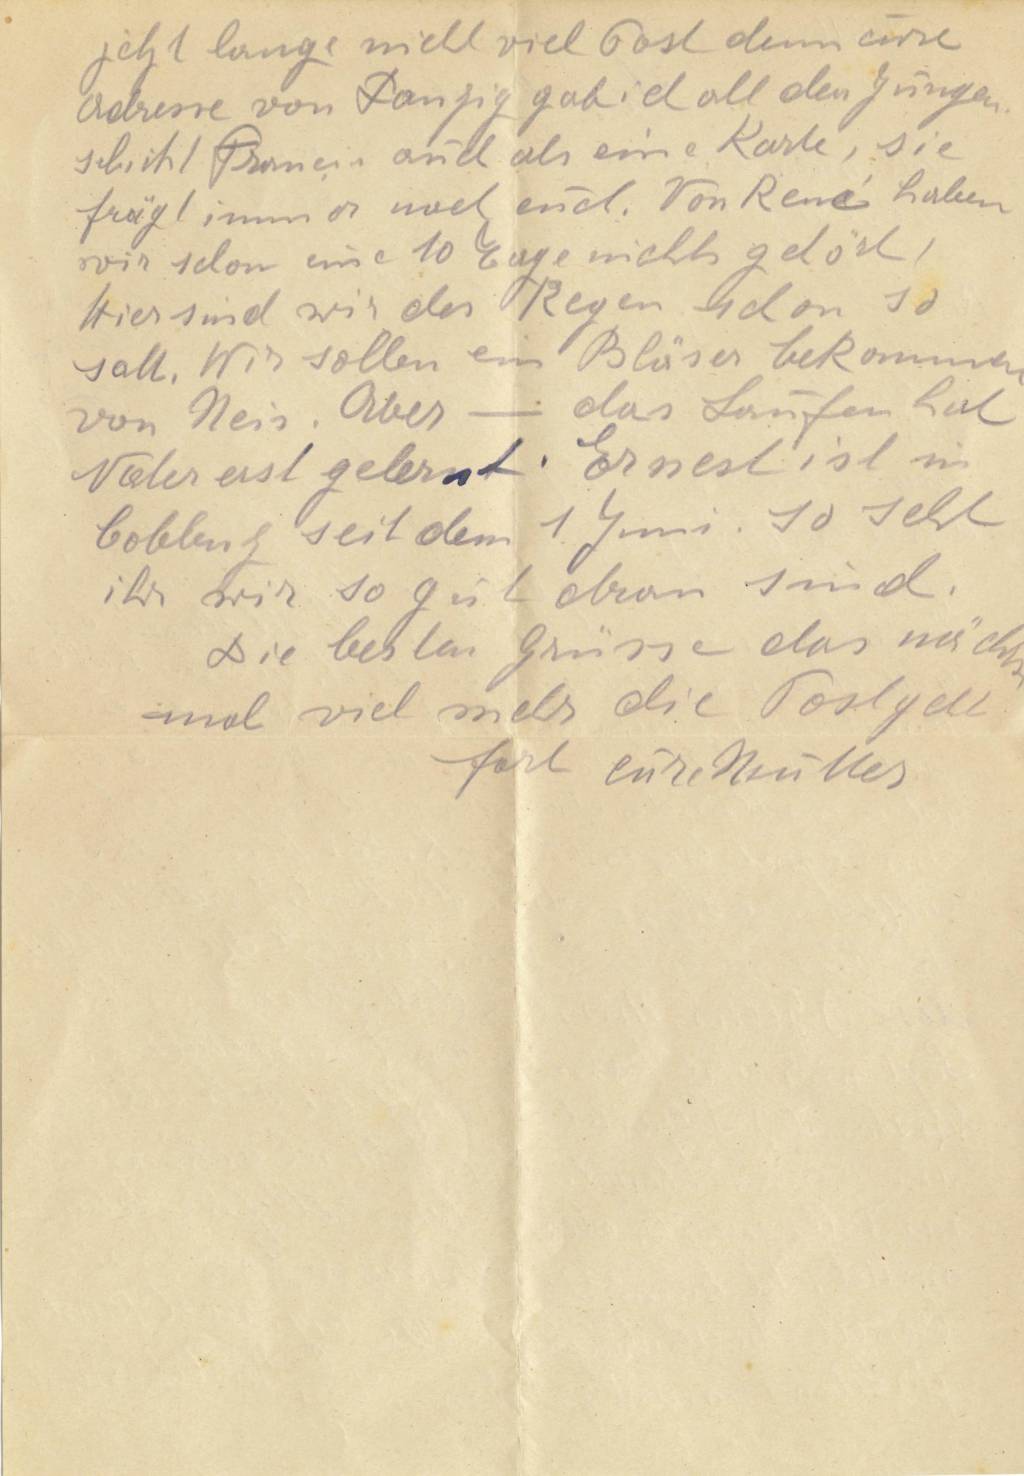 jetzt lange nicht viel Post denn eure
Adresse von Danzig gab ich all den Jungen.
schickt Francis auch als eine Karte, sie
frägt immer nach euch. Von René haben
wir schon eine 10 Tage nichts gehört,
Hier sind wir des Regen schon so
satt. Wir sollen ein Bläser bekommen
von Neis. Aber — das Laufen hat
Vater erst gelernt. Ernest ist in
Coblenz seit dem 1 Juni. so seht
ihr wir so gut dran sind.
Die besten Grüsse das nächste
mal viel mehr die Post geht
fort eure Mutter